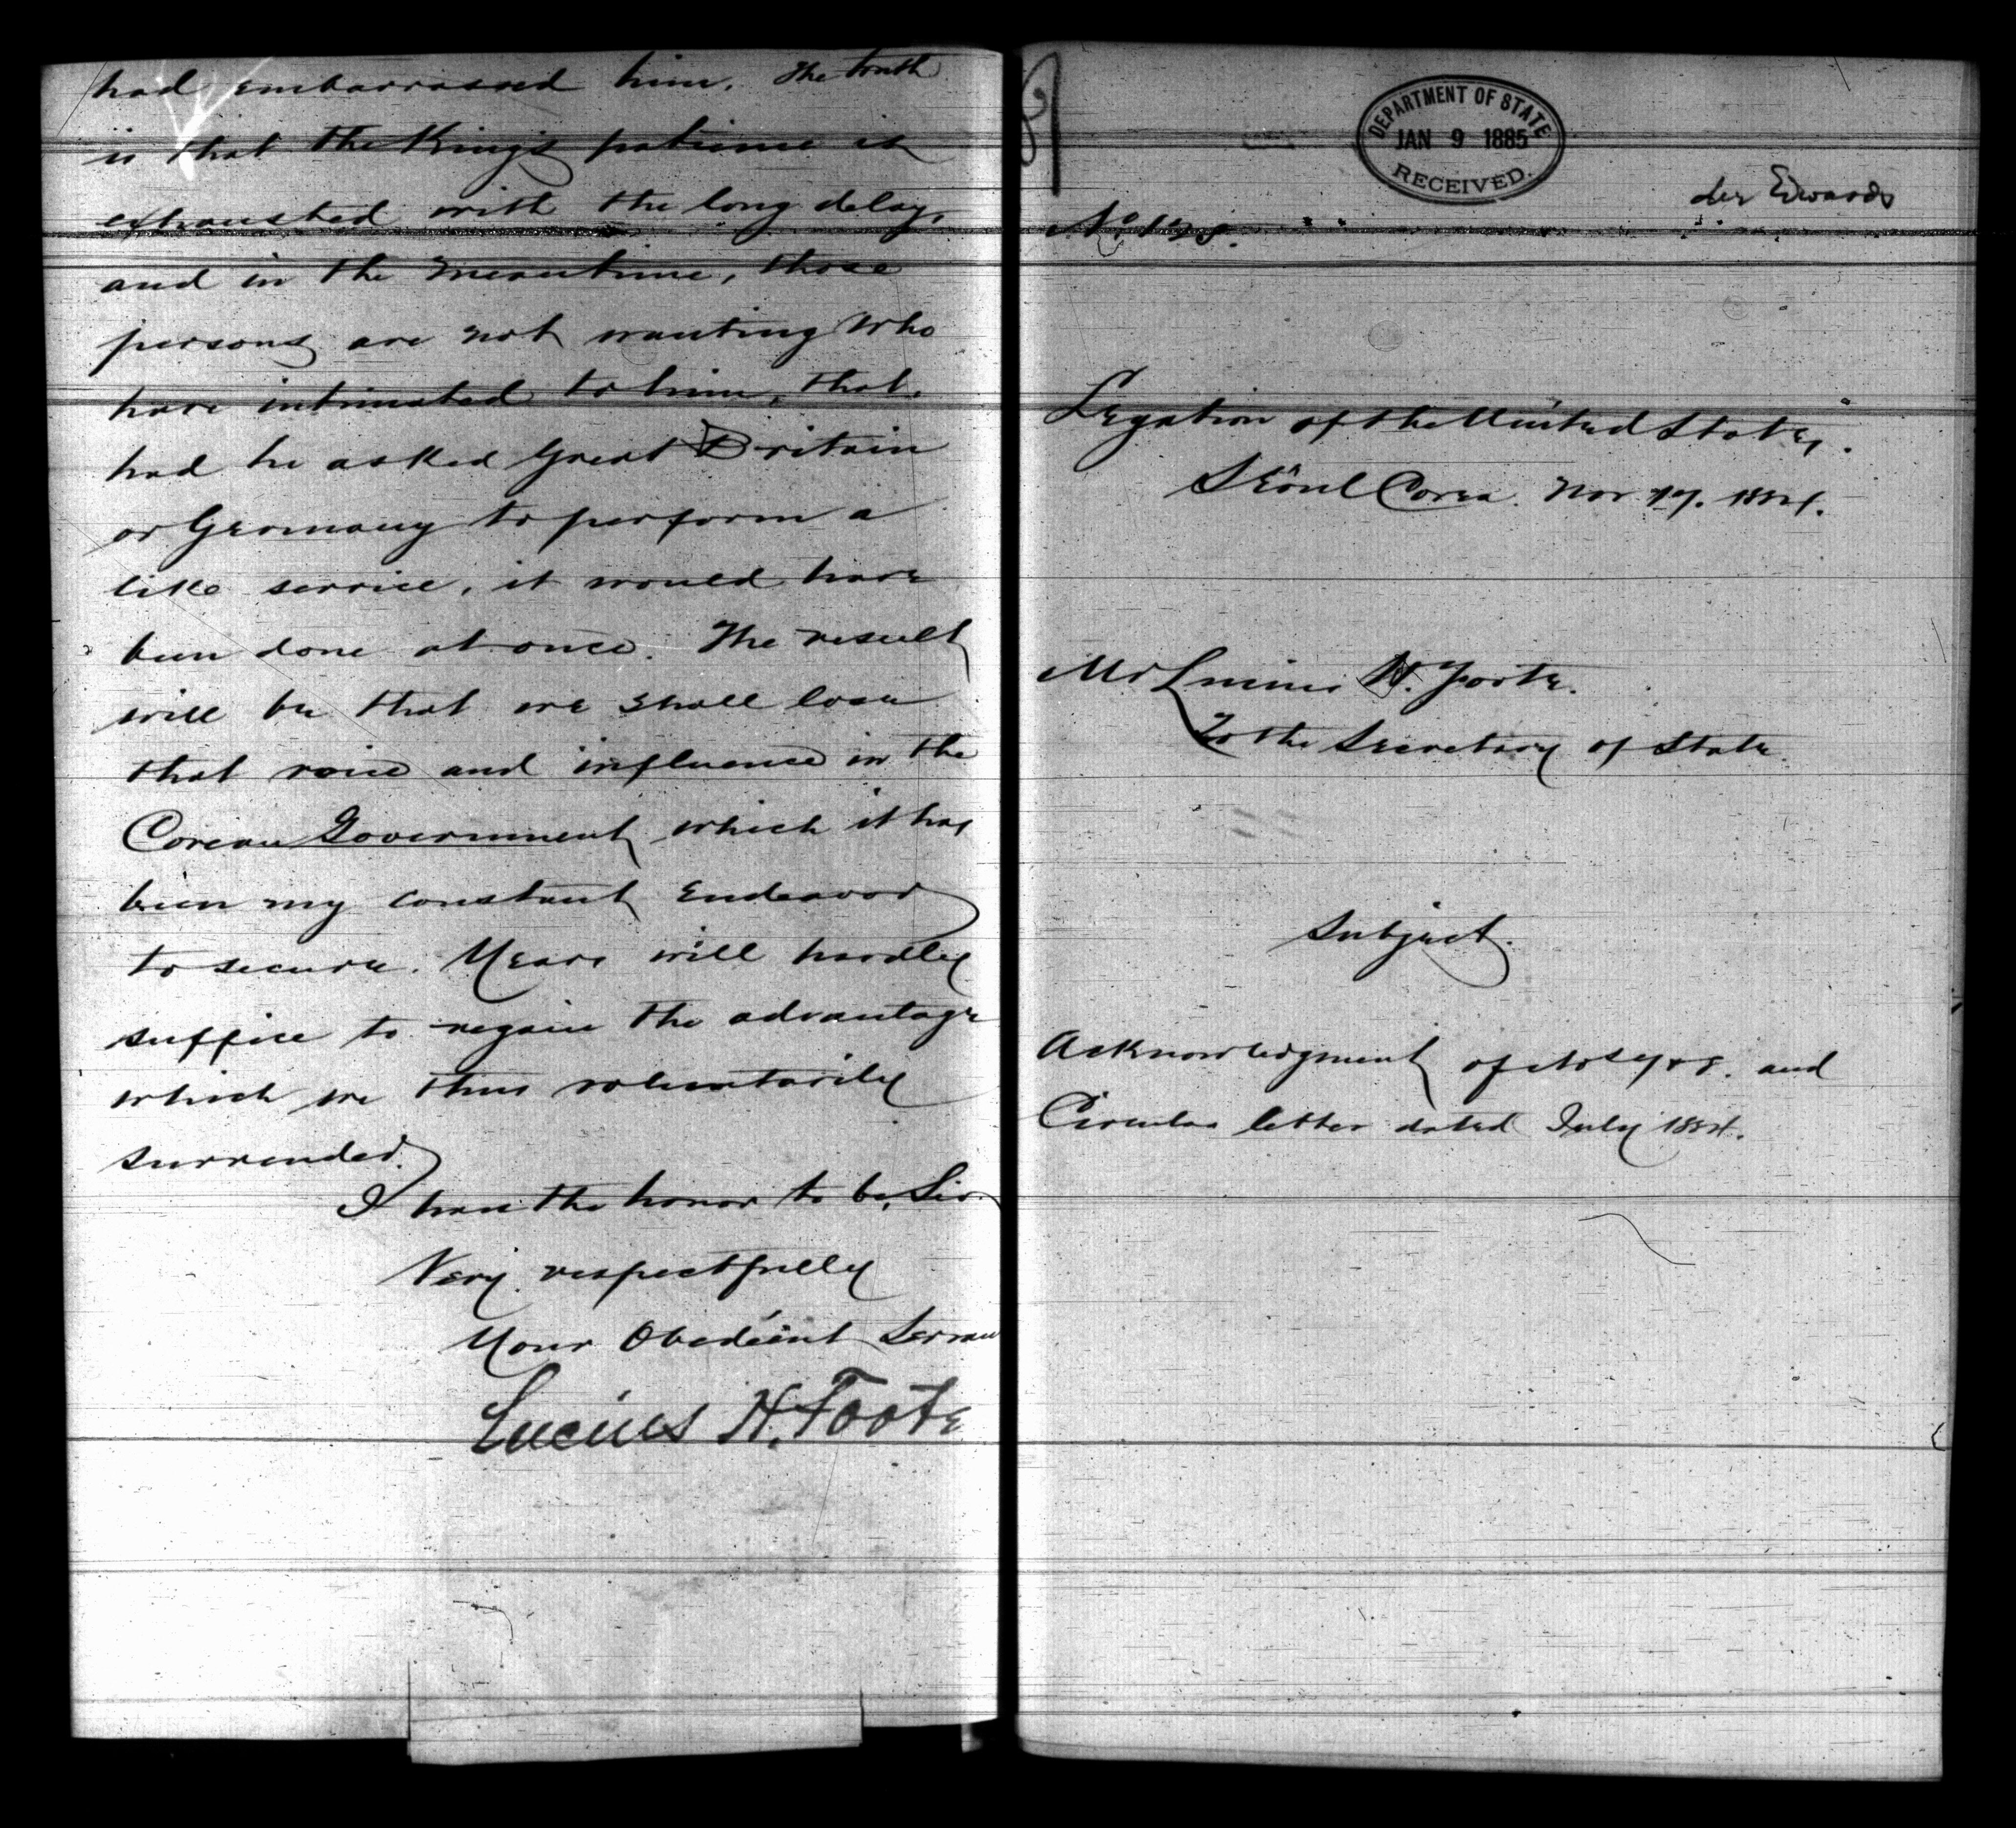 had embarrassed him. The truth
is that the King's patience is
exhausted with the long delay,
and in the meantime, those
persons are not wanting who
have intimated to him, that
had he asked Great Britain
or Germany to perform a
like service, it would have
been done at once. The result
will be that we shall lose
that voice and influence in the
Corean Government which it has
been my constant endeavor
to secure. Years will hardly
suffice to regain the advantage
which we thus voluntarily
surrended.
I have the honor to be, Sir
Very respectfully
Your Obedient Servan
Lucius H. Foote
DEPARTMENT OF STATE
JAN 9 1885
RECEIVED.
Edwards
No.
Legation of the United States.
Sëoul Corea. Nov 1884.
Mr Lucius H. Foote.
To the Secretary of State.
Subject.
Acknowledgment of and
Circular letter dated July 1884.